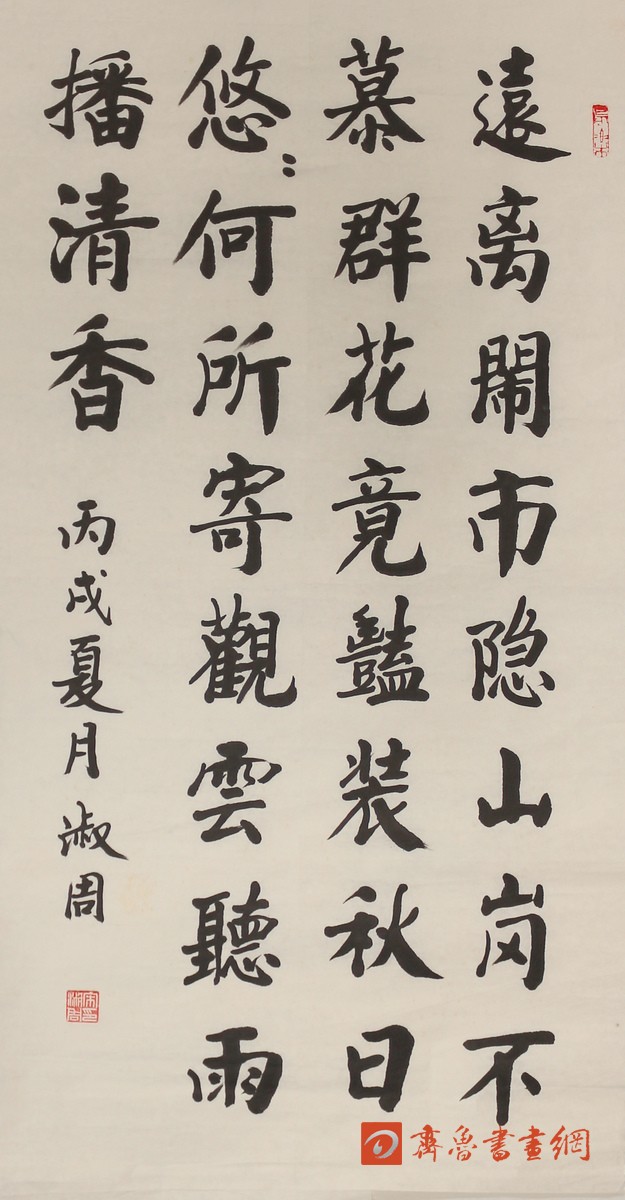 遠离鬧市隐山岗不
慕群花竟豔装秋日
悠〻何所寄觀雲聽雨
播清香
丙戌夏月淑周
齊魯書畫網